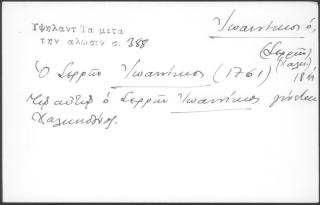 Ὑψηλαντ Τα μετα
την αλωσιν σ. 388
Ἰωαννίκιος ὁ,
(Σερρῶν)
(Χαλκ.)
Ὁ Σερρῶν Ἰωαννίκιος (1761)
ὁ Σερρῶν Ἰωαννίκιος γίνεται
Χαλκηδόνος.